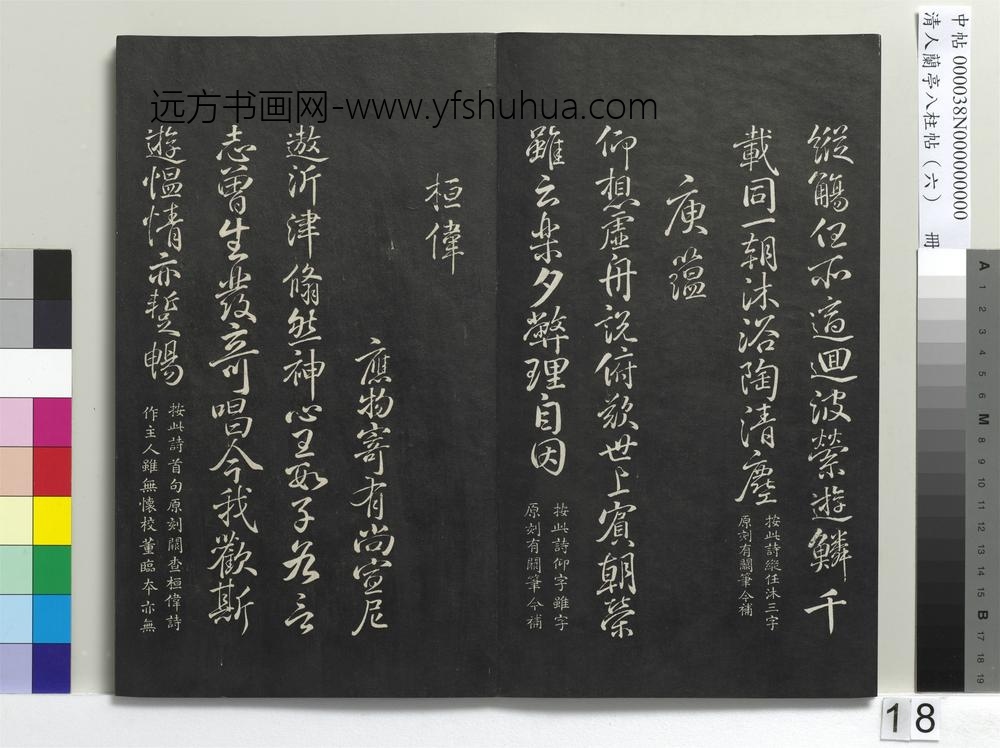 縱觴任所適迴波縈遊鱗千
載同一朝沐浴陶清塵
按此詩縱任沐三字
原刻有闕筆今補
庾蘊
仰想虛舟說俯歎世上賓朝榮
雖云樂夕弊理自因
按此詩仰字雖字
原刻有闕筆今補
桓偉
應物寄有尚宣尼
遨沂津翛然神心王數子各言
志曾生發奇唱今我歡斯
遊慍情亦蹔暢
按此詩首句原刻闕查桓偉詩
作主人雖無懷校董臨本亦無
远方书画网-www.yfshuhua.com
中帖000038N000000000
清人蘭亭八柱帖(六) 冊
A 1 2 3 4 5 6 M 8 9 10 11 12 13 14 15 B 17 18 19
18